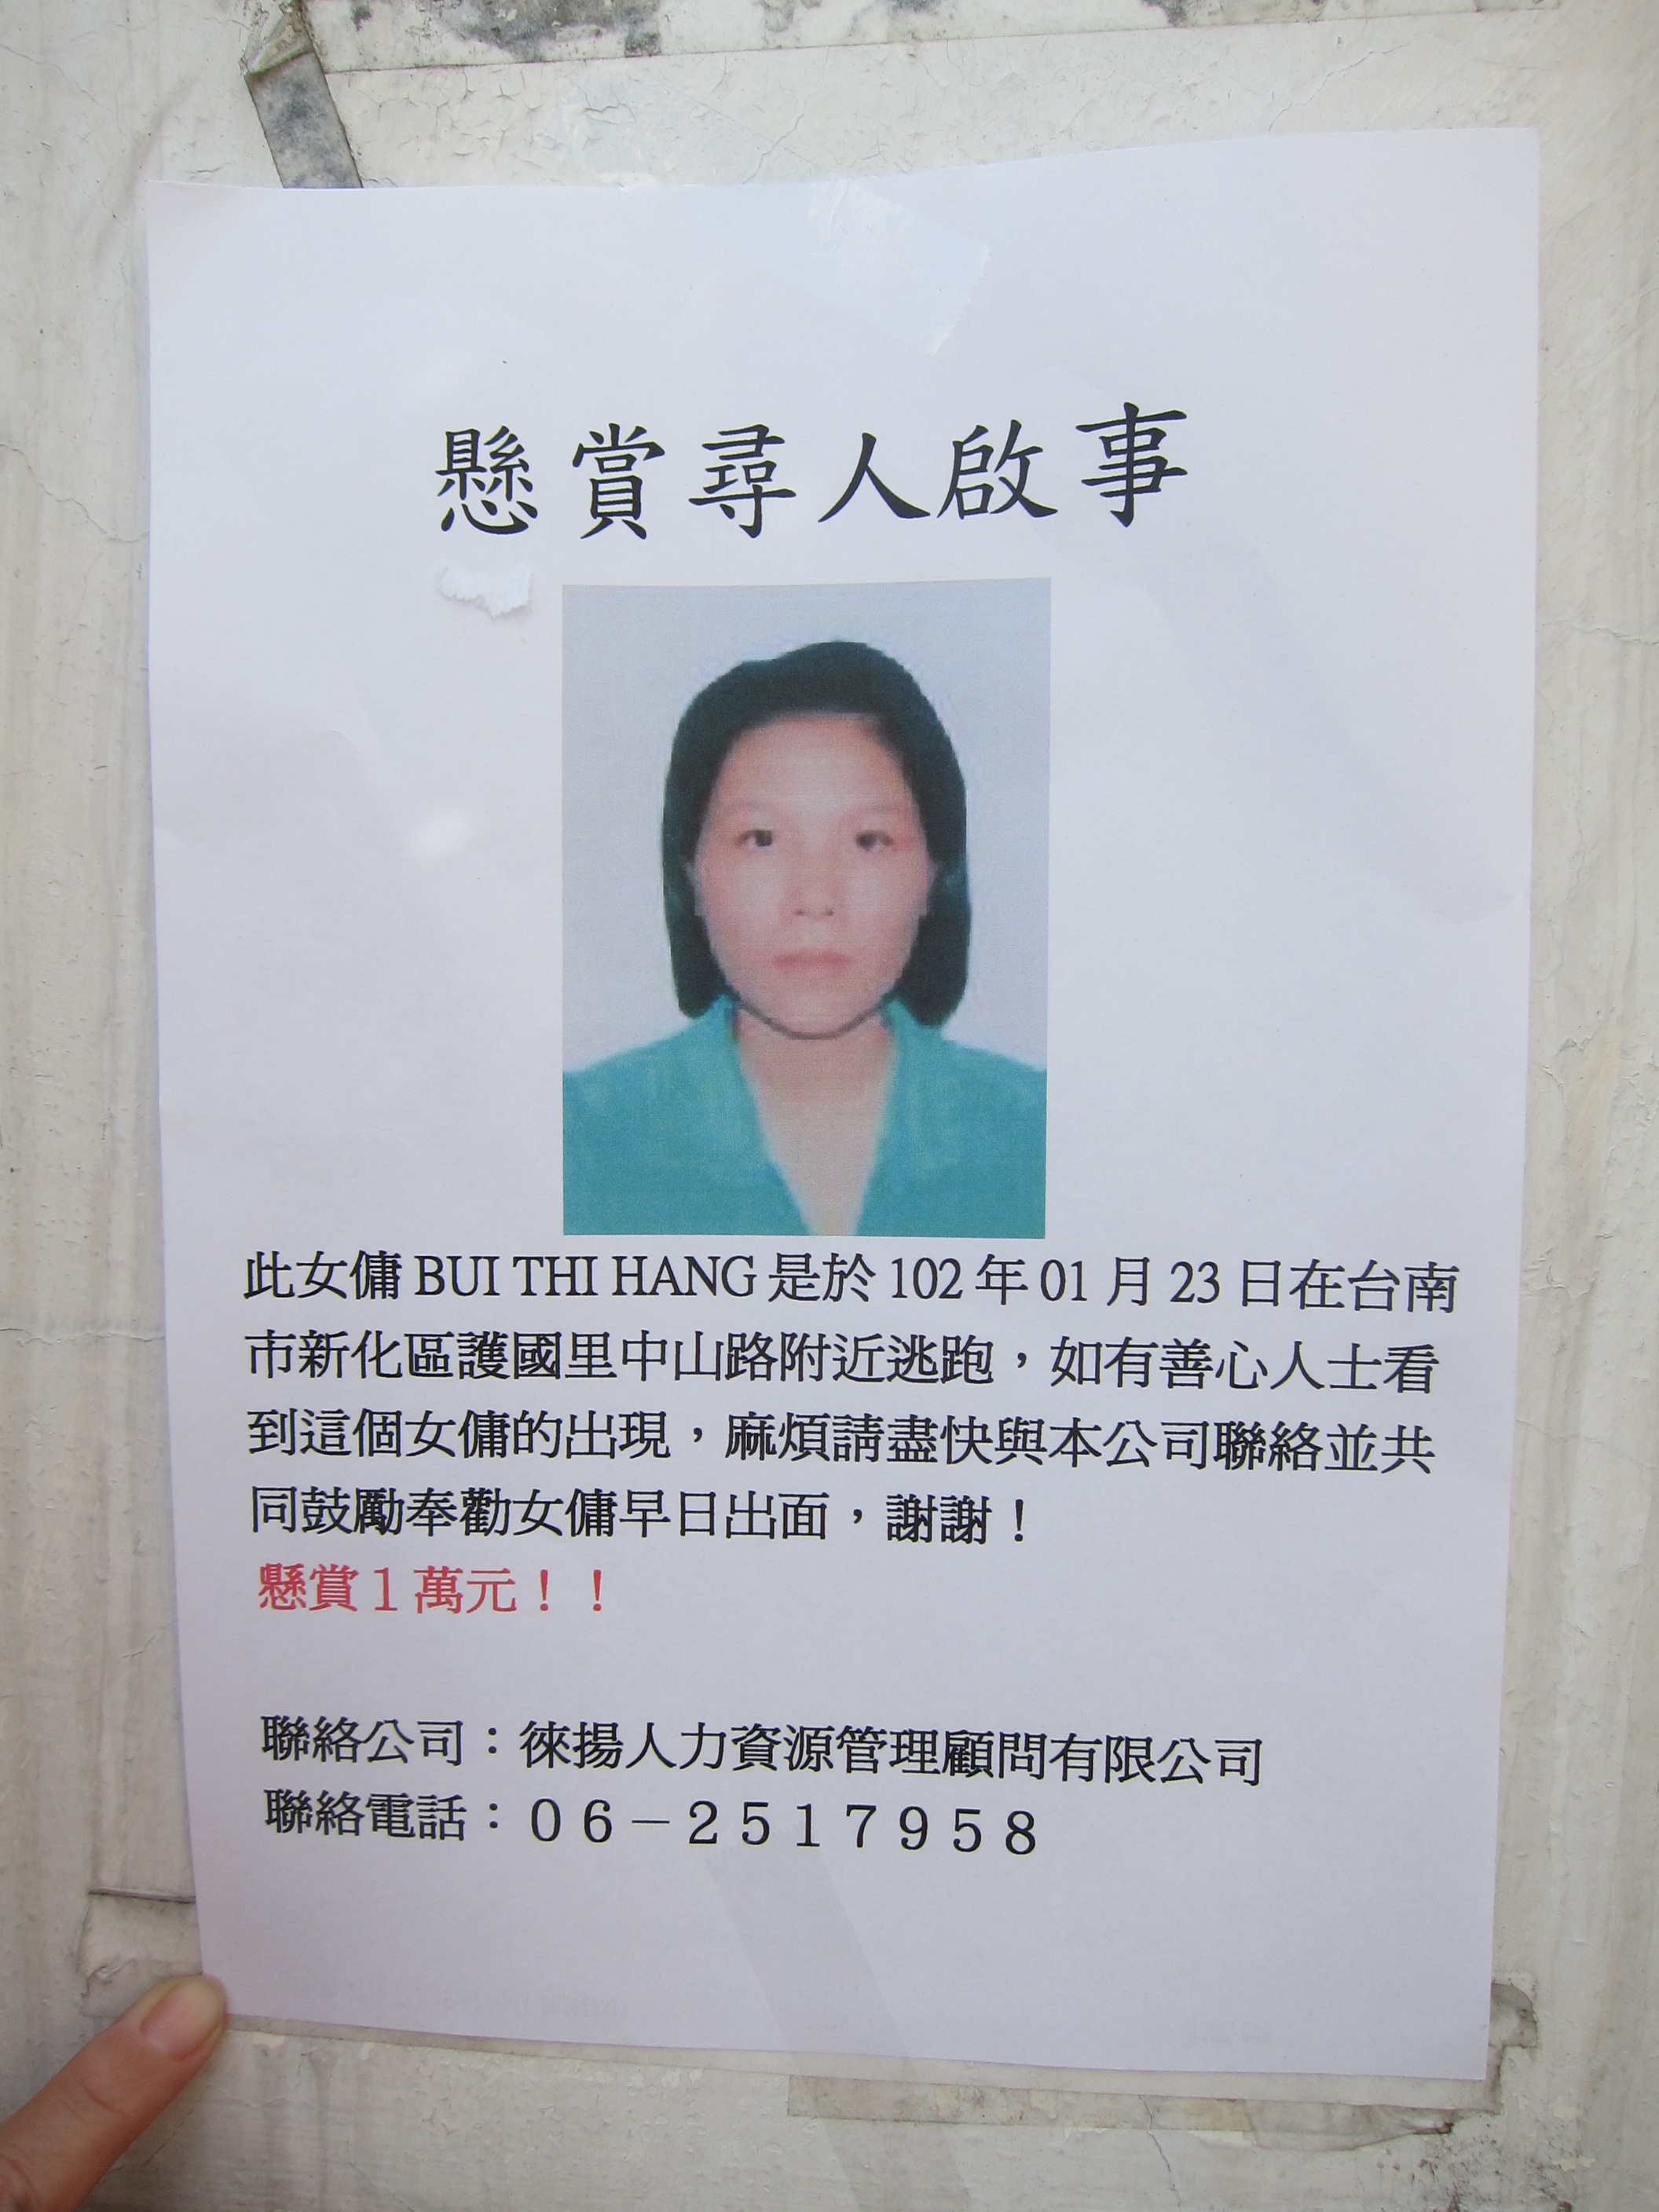 懸賞尋人啟事
此女傭 BUI THI HANG 是於 102 年 01 月 23 日在台南
市新化區護國里中山路附近逃跑，如有善心人士看
到這個女傭的出現，麻煩請盡快與本公司聯絡並共
同鼓勵奉勸女傭早日出面，謝謝！
懸賞１萬元！！
聯絡公司：徠揚人力資源管理顧問有限公司
聯絡電話：０６－２５１７９５８